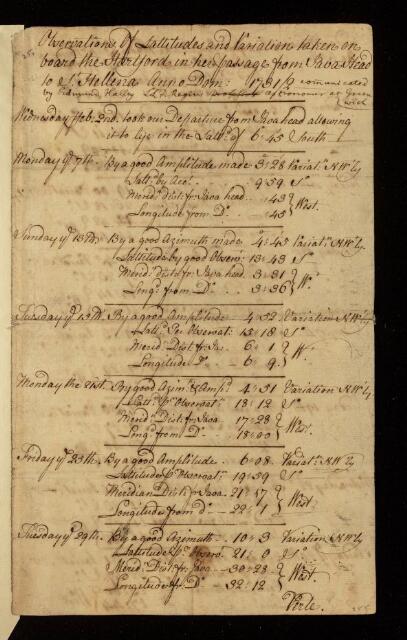 Observations Of Lattitudes and Variation taken on
board the Hartford in her passage from Java Head
to St. Hellena Anno Dom: 1731/2 comunicated
by Edmund Halley astronomer at Green
wich
Wednesday Feb. 2nd. took our Departure from Java head allowing
it to lye in the Latt: of 6:45 South
Monday ye 7th. By a good Amplitude made 3:28 Variat. N.W.ly
Latt: by Acct. 9:59 So.
Merid: Dist: fr: Java head .. :43
Longitude from Do. .. :45 } West.
Sunday ye 13th. By a good Azimuth made 4:45 Variat. N.W.ly
Lattitude by good Observ: 13:43 So.
Merid: Dist: fr: Java head 3:31
Long: from Do. .. 3:36 } W.
Tuesday ye 15th By a good Amplitude 4:52 Variation N.W.ly
Latt: Pr. Observat: 15:18 So.
Merid: Dist: fr: Ja. .. 6:1
Longitude Do. - 6:9 } W.
Monday the 21st. By good Azim: & Ampl: 4:51 Variation N.W.ly
Latt: Pr. Observat: 18:12 So.
Merid: Dist: fr: Java 17:28
Long: from Do. 18:00 } West.
Friday ye 25th. By a good Amplitude .. 6:08 Variat. N.W.ly
Lattitude Pr. Observat: 19:59 So.
Meridian Dist: fr: Java. 21:17
Longitude from do - 22:1 } West
Tuesday ye 29th. By a good Azemuth - 10:3 Variation N.W.ly
Lattitude Pr. Observ: 21:0 So.
Merid: Dist: fr: Java -- 30:23
Longitude fr: Do. 32:12 } West.
Verte.